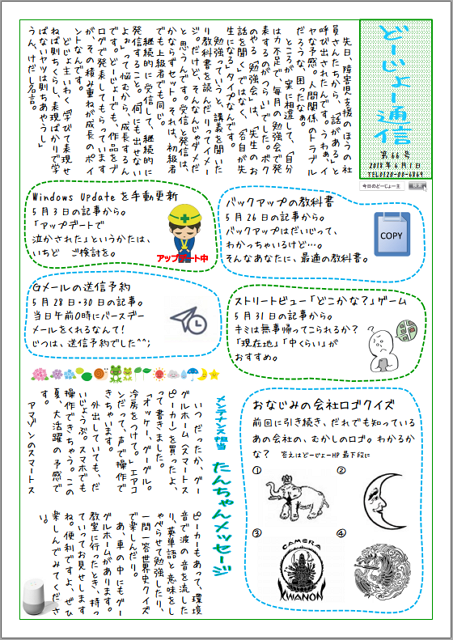 どーじょー通信
第66号
2018年6月1日
TEL0120-00-6869
今日のどーじょーは
先日、障害児支援のほうの社
員さんたちから、「話がある」と
呼び出されたんです。わ、い
やな予感。人間関係のトラブル
だろうな、困ったなぁ。
ところが実は相違して、「自分
は力不足で、毎月の勉強会で発
表するのがつらい」でした。ボク
のやる「勉強会」は、「先生のお
話を聞く」ではなく、「各自が先
生になる」タイプなんです。
勉強っていうと、講義を聞いた
り教科書を読んだりってイメー
ジ。だけど、そんなんじゃダメだ
と思うんです。受信と発信で
かならずセット。それは、初級者
でも上級者でも同じ。
継続的に受信して、継続的に
発信すること。何にも出せない
とこで悩むから、成長するん
です。どーじょーでも、作品をブ
ログで発表してもらっています
が、その積み重ねが成長のポイ
ントなんです。
どーじょー主いわく、学びて表現せ
ねば則ちくらし、表現ばかりで学
ばないヤツは則ちあやうし。
うん、けだし名言。
Windows Updateを手動更新
5月3日の記事から。
「アップデートで
泣かされた」というかたは、
いちど ご検討を。
アップデート中
バックアップの教科書
5月26日の記事から。
バックアップはだいじって、
わかっちゃいるけど…。
そんなあなたに、最適の教科書。
COPY
Gメールの送信予約
5月28日・30日の記事。
当日午前0時にバースデー
メールをくれるなんて!
じつは、送信予約でした^^;
ストリートビュー「どこかな?」ゲーム
5月31日の記事から。
キミは無事帰ってこられるか?
「現在地」「中くらい」が
おすすめ。
メンテナンス担当 たんちゃんメッセージ
いつだったか、グー
グルホーム(スマートス
ピーカー)を買ったよ、
って書きました。
「オッケー、グーグル。
冷房をつけて。」エアコ
ンだって、声で操作で
きちゃいます。
外出していても、だ
いじょうぶ。スマホでも
操作できちゃう。この
夏、大活躍の予感で
す。
アマゾンのスマートス
ピーカーもあって、環境
音で波の音を流した
り、英単語と意味をし
ゃべらせて勉強したり、
一問一答世界史クイズ
で楽しんだり。
あ、車の中にもグー
グルホームがあります。
教室に行ったとき、持っ
ていってお見せします
ね。便利ですよ、ぜひ
楽しんでみてくださ
い。
おなじみの会社ロゴクイズ
前回に引き続き、だれでも知っている
あの会社の、むかしのロゴ。わかるか
な? 答えはどーじょーHP 最下段に
①
②
③
④
CAMERA
KWANON